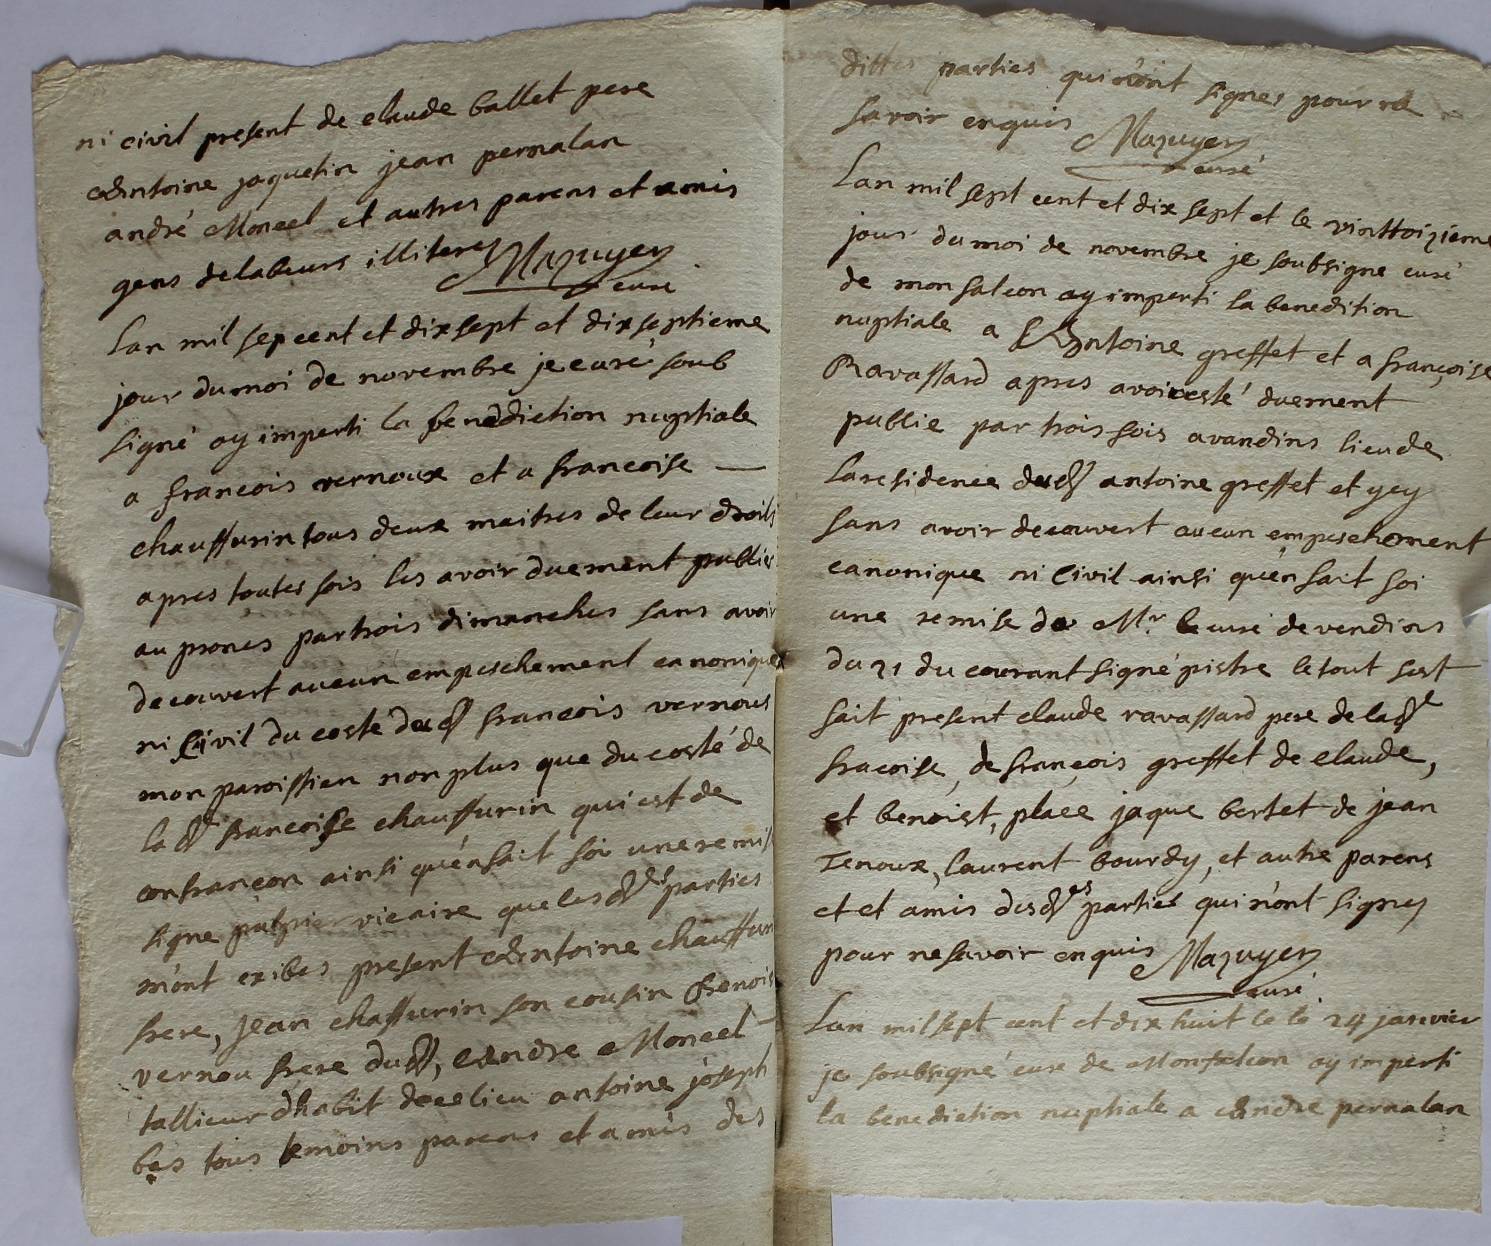 ni civil present de claude ballet pere
Antoine jaquetin jean pernalan
andré Moncel et autres parens et amis
gens delabeurs illiteres Mazuyer
curé
Lan mil sepcent et dixsept et dixseptieme
jour dumoi de novembre je curé soub
signé ay imparti la benediction nuptiale
a francois vernoux et a francoise
chauffurin tous deux maitres de leur droits
apres toutes fois les avoir duement publies
au prones partrois dimanches sans avoir
decouvert aucun empeschement canonique
ni civil du coste dud francois vernous
mon paroissien non plus que du costé de
la d francoise chauffurin qui est de
confrancon ainsi qu'enfait foi une remise
signe vicaire que les dttes parties
m'ont exibes present Antoine chauffurin
frere, jean chaffurin son cousin benoist
vernou frere dud, Andre Moncel
tallieur d'habit dece lieu antoine joseph
bas tous temoins parens et amis des
dittes parties qui n'ont signes pour ne
savoir enquis Mazuyer
curé
Lan mil sept cent et dix sept et le vinttoizieme
jour du moi de novembre je soubsigne curé
de monfalcon ay imperti la benedition
nuptiale a Antoine greffet et a françoise
Ravassard apres avoir esté duement
publie par trois fois avandins lieu de
laresidence dud antoine greffet et ycy
sans avoir decouvert aucun empeschement
canonique ni Civil ainsi qu'enfait foi
une remise de Mr le curé de vendins
du 21 du courant signé pistre le tout sest
fait present claude ravassard pere de lade
fracoise, de françois greffet de claude,
et benoist, place jaque bertet de jean
Tenoux, laurent bourdy, et autre parens
et et amis desdes parties qui n'ont signes
pour ne savoir enquis Mazuyer
curé
Lan milsept cent et dix huit le le 24 janvier
je soubsigné curé de Monfalcon ay imperti
la benediction nuptiale a Andre pernalan